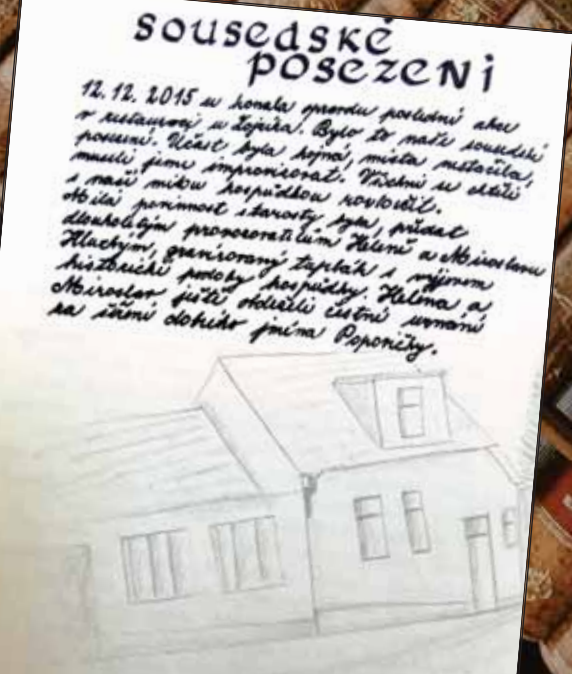 SOUSEDSKÉ
POSEZENÍ
12. 12. 2015 se konala opravdu poslední akce
v restauraci u Zojeika. Bylo to naše sousedské
posezení. Účast byla hojná, místa nestačila,
museli jsme improvizovat. Všichni se chtěli
s naší milou hospůdkou rozloučit.
Milá povinnost starosty byla, předat
dlouholetým provozovatelům Heleně a Miroslavu
Hluchým, gravírovaný tapbák s výjevem
historické podoby hospůdky. Helena a
Miroslav ještě obdrželi čestné uznání
za šíření dobrého jména Popovičky.